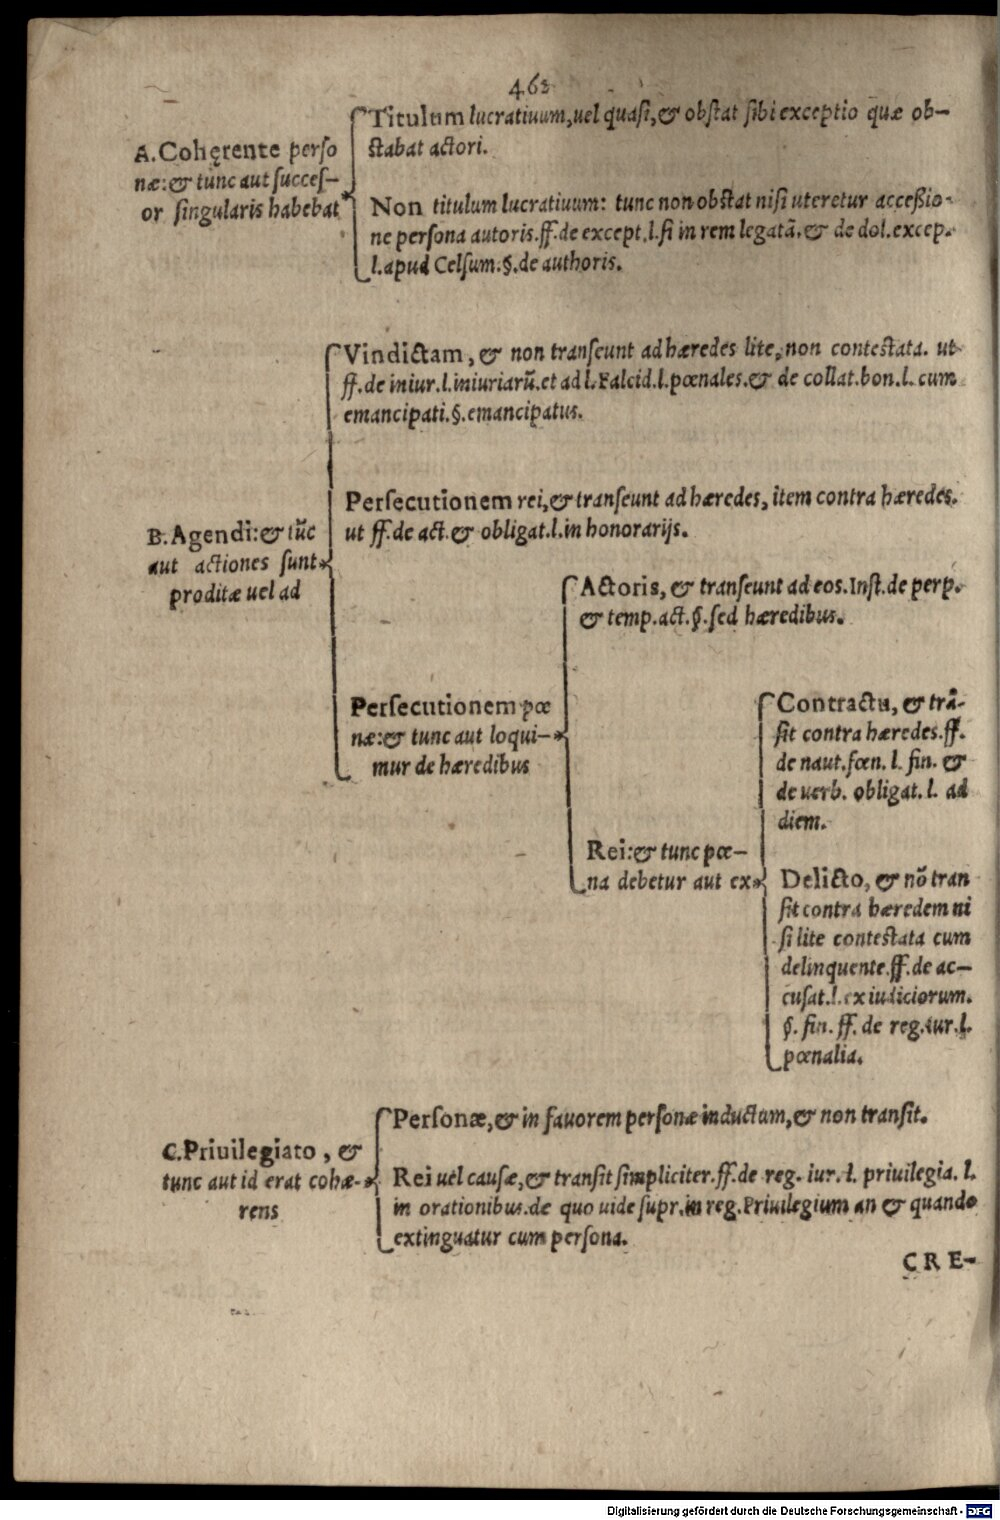 462
A. Cohęrente perſo
næ: & tunc aut ſucceſ-
or ſingularis habebat
Titulum lucratiuum, uel quaſi, & obſtat ſibi exceptio quæ ob-
ſtabat actori.
Non titulum lucratiuum: tunc non obſtat niſi uteretur acceßio-
ne perſona autoris. ff. de except. l. ſi in rem legatã. & de dol. excep.
l. apud Celſum. §. de authoris.
B. Agendi: & tũc
aut actiones ſunt
proditæ uel ad
Vindictam, & non tranſeunt ad hæredes lite, non conteſtata. ut
ff. de iniur. l. iniuriarũ. et ad l. Falcid. l. pœnales. & de collat. bon. l. cum
emancipati. §. emancipatus.
Perſecutionem rei, & tranſeunt ad hæredes, item contra hæredes.
ut ff. de act. & obligat. l. in honorarijs.
Perſecutionem pœ
næ: & tunc aut loqui-
mur de hæredibus
Actoris, & tranſeunt ad eos. Inſt. de perp.
& temp. act. §. ſed hæredibus.
Rei: & tunc pœ-
na debetur aut ex
Contractu, & trã-
ſit contra hæredes. ff.
de naut. fœn. l. fin. &
de uerb. obligat. l. ad
diem.
Delicto, & nõ tran
ſit contra hæredem ni
ſi lite conteſtata cum
delinquente. ff. de ac-
cuſat. l. ex iudiciorum.
§. fin. ff. de reg. iur. l.
pœnalia.
C. Priuilegiato, &
tunc aut id erat cohæ-
rens
Perſonæ, & in fauorem perſonæ inductum, & non tranſit.
Rei uel cauſæ, & tranſit ſimpliciter. ff. de reg. iur. l. priuilegia. l.
in orationibus. de quo uide ſupr. in reg. Priuilegium an & quando
extinguatur cum perſona.
CRE-
Digitalisierung gefördert durch die Deutsche Forschungsgemeinschaft - DFG